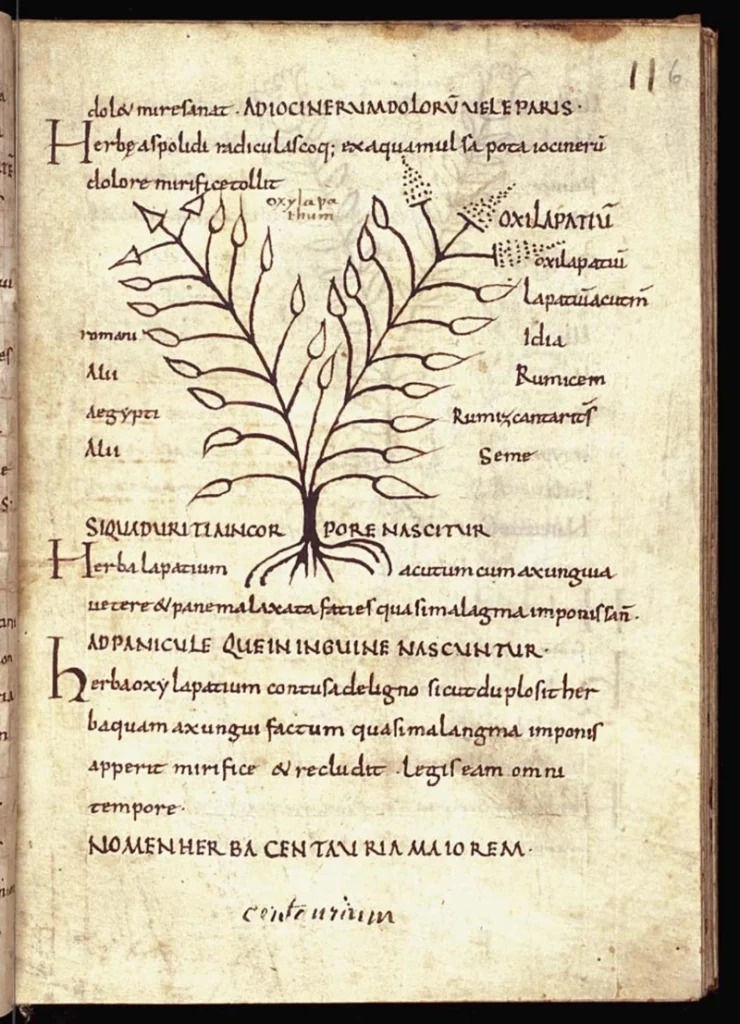 116
dolore mire sanat · AD IOCINERUM DOLORŪ UEL EPARIS ·
Herbę aspolidi radiculas coq; ex aqua mulsa pota iocinerū
dolore mirifice tollit
oxylapa
thum
OXILAPATIŪ
oxilapatiū
lapatiū acutm̄
romani
Idia
Alii
Rumicem
Aegypti
Alii
Seme
SI QUA DURITIA IN CORPORE NASCITUR
Herba lapatium acutum cum axungiia
uetere & pane malaxata facies quasi malagma imponis san̄ ·
AD PANICULE QUE IN INGUINE NASCUNTUR ·
herba oxylapatium contusa deligno sicut duplosit her
baquam axungui factum quasi malangma imponis
apperit mirifice & recludit · legis eam omni
tempore ·
NOMEN HERBA CENTAURIA MAIOREM ·
centaurium